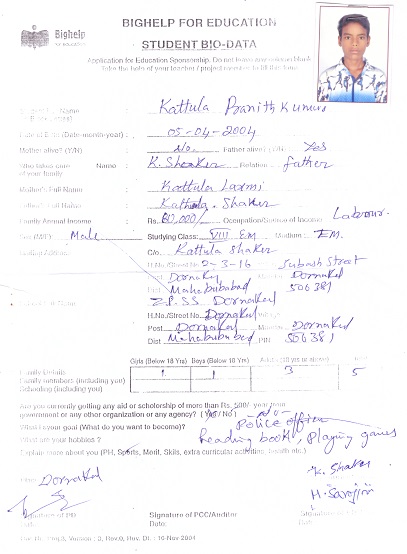 Bighelp
FOR EDUCATION
BIGHELP FOR EDUCATION
STUDENT BIO-DATA
Application for Education Sponsorship. Do not leave any column blank
Take the help of your teacher / project investee to fill this form
Name Kattula Pranith Kumar
Date of Birth (Date-month-year) 05-04-2004
Mother alive? (Y/N) No. Father alive? (Y/N) Yes
Who takes care Name K. Sheaker Relation father
of your family
Mother's Full Name Kattula Laxmi
Kathula. Shaker
Family Annual Income Rs. 60,000/- Occupation/Source of Income Labour.
Sex (M/F): Male Studying Class: VIII EM Medium: EM.
C/o. Kattula Shaker
H.No./Street No. 2-3-16 Subash Street
Post Dornakal Dornakal
Dist. Mahabubabad 506381
Z.P.SS Dornakal
H.No./Street No. Dornakal Village
Post Dornakal Dornakal
Dist Mahabubabad PIN 506381
Girls (Below 18 Yrs) Boys (Below 18 Yrs) Adults (18 yrs or above)
Family Details
Family members (including you) 1 1 3 5
Schooling (including you)
Are you currently getting any aid or scholarship of more than Rs. 500/- year from
government or any other organization or any agency? (Yes/No) - No -
What is your goal (What do you want to become?) Police officer
What are your hobbies? Reading book, playing games
Explain more about you (PH, Sports, Merit, Skills, extra curricular activities, health etc.)
K. Shaker
Dornakal
H. Sarojini
Signature of PD Signature of PCC/Auditor
Date. Date.